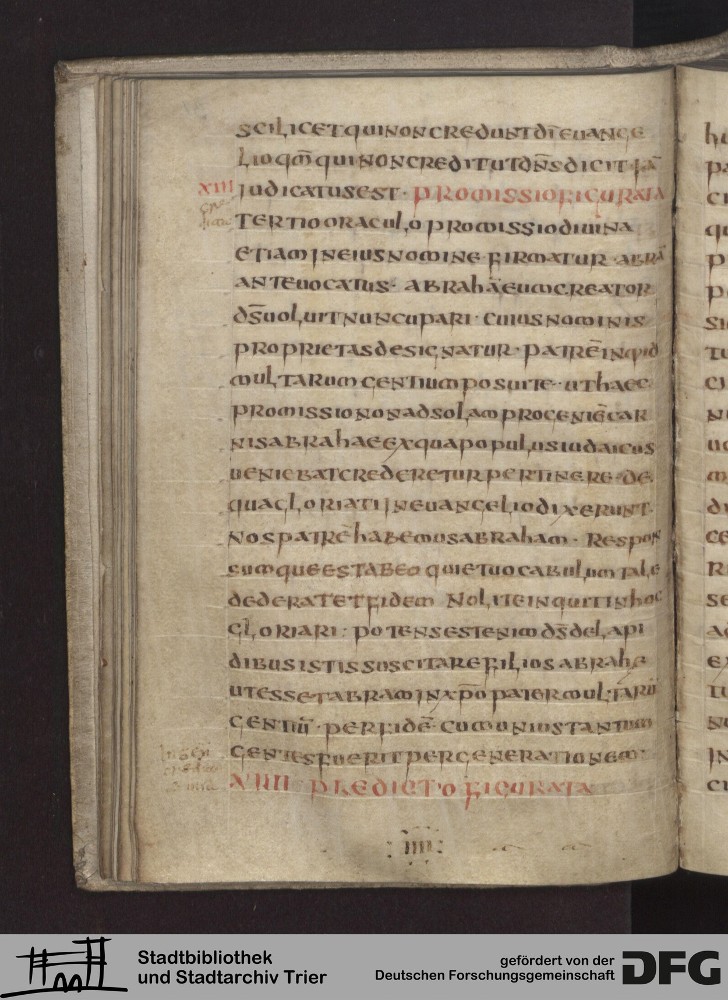 scilicet qui non credunt dī euange
lio qm̄ qui non credit ut dn̄s dicit iā
XIII iudicatus est · promissio figurata
tertio oraculo promissio diuina
etiam in eius nomine firmatur abrā
ante uocatus · abrahā eum creator
ds̄ uoluit nuncupari · cuius nominis
proprietas designatur · patrē inquid
multarum gentium posui te · ut haec
promissio non ad solam progeniē car
nis abrahae ex qua populus iudaicus
ueniebat crederetur pertinere · de
qua gloriati in euangelio dixerunt
nos patrē habemus abraham · respon
sumque est ab eo qui et uocabulum tale
dederat et fidem nolite inquit in hoc
gloriari : potens est enim ds̄ de lapi
dibus istis suscitare filios abrahe
ut esset abram in xp̄o pater multarū
gentiū · per fidē cum unius tantum
gentes fuerit per generationem :
XIIII predictio figurata
IIII
Stadtbibliothek
und Stadtarchiv Trier
gefördert von der
Deutschen Forschungsgemeinschaft
DFG